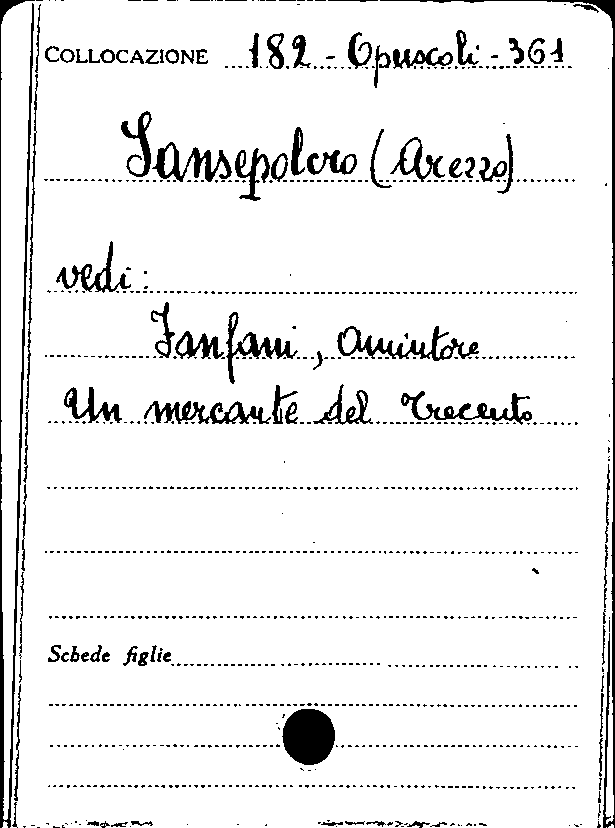 COLLOCAZIONE 182 - Opuscoli - 361
Sansepolcro (Arezzo)
vedi:
Fanfani, Amintore
Un mercante del Trecento
Schede figlie